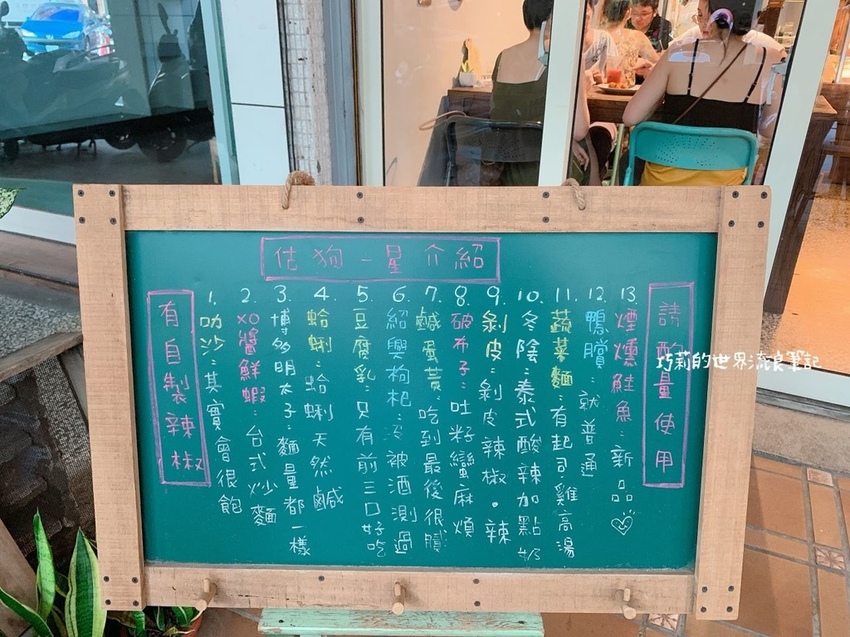 估狗一星介紹
請酌量使用
13.煙燻鮭魚:新品♡
12.鴨臏:就普通
11.蔬菜麵:有起司雞高湯
10.冬陰:泰式酸辣加點奶
9.剝皮:剝皮辣椒。辣
8.破布子:吐籽蠻麻煩
7.鹹蛋黃:吃到最後很膩
6.紹興枸杞:沒被酒測過
5.豆腐乳:只有前三口好吃
4.蛤蜊:蛤蜊天然鹹
3.博多明太子:麵量都一樣
2.XO醬鮮蝦:台式炒麵
1.叻沙:其實會很飽
有自製辣椒
巧莉的世界流浪筆記